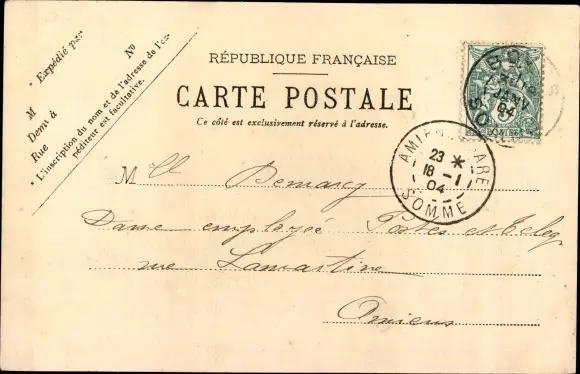 Expédié par
No
M
Demt à
Rue
L'inscription du nom et de l'adresse de l'ex-
péditeur est facultative.
RÉPUBLIQUE FRANÇAISE
CARTE POSTALE
Ce côté est exclusivement réservé à l'adresse.
JANV
04
AMIENS GARE
23 *
18 - 1
04
SOMME
Mlle Demarcy
Dame employée Postes et Teleg
rue Lamartine
Amiens